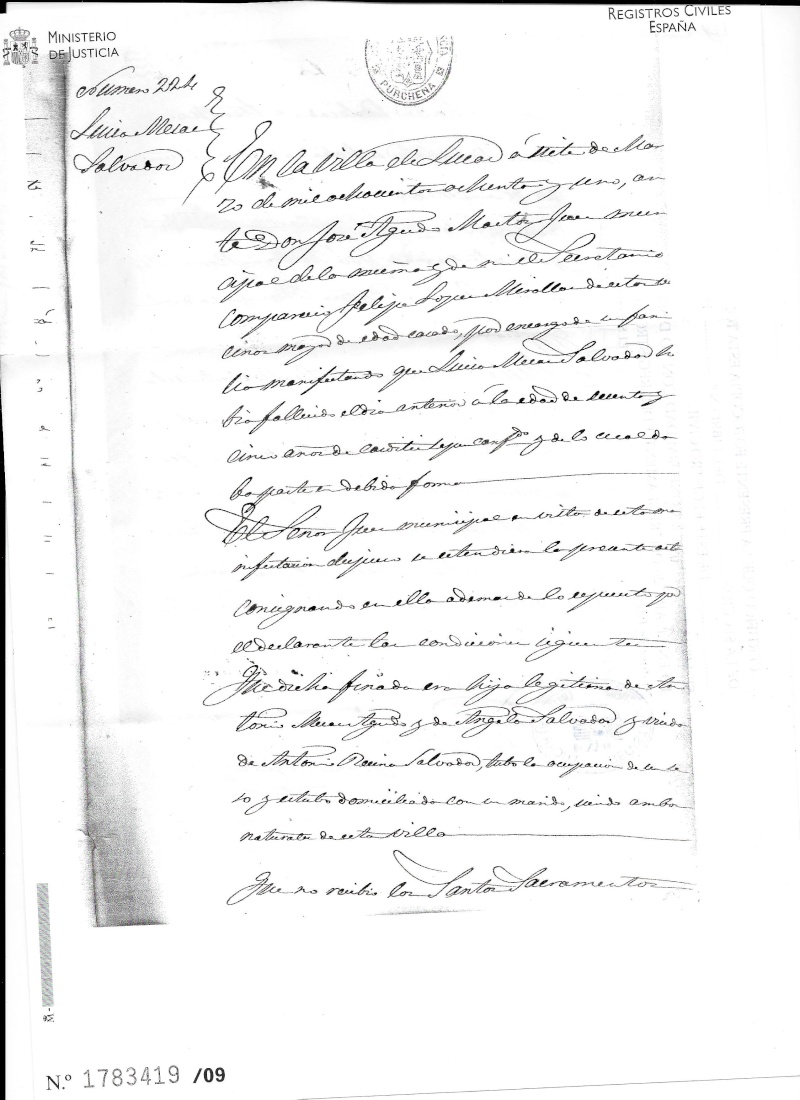 MINISTERIO
DE JUSTICIA
REGISTROS CIVILES
ESPAÑA
PURCHENA
Numero 224
Lucia Mesas
Salvador
En la villa de Lucar á siete de Mar
zo de mil ochocientos ochenta y uno, an
te Don José Agudo Martos Juez muni
cipal de la misma y de mi el Secretario
comparecio Felipe Lopez de esta ve
cinos mayor de edad casado, por encargo de su fami
lia manifestando que Lucia Mesas Salvador ha
bia fallecido el dia anterior á la edad de y
cinco años de y de lo cual da
ba parte en debida forma
El Señor Juez municipal en vista de esta ma
nifestacion dispuso se estendiera la presente acta
consignando en ella ademas de lo espuesto por
el declarante las condiciones siguientes
Que dicha finada era hija legitima de An
tonio Mesas Agudo y de Angela Salvador y viuda
de Antonio Reina Salvador, tubo la ocupacion de su se
xo y estubo domiciliada con su marido, siendo ambos
naturales de esta villa
Que no recibio los Santos Sacramentos
N.º 1783419 /09